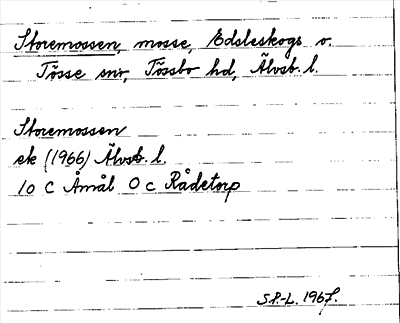 Storemossen, mosse, Edsleskogs o.
Tösse snr, Tössbo hd, Älvsb. l.
Storemossen
ek (1966) Älvsb. l.
10 C Åmål 0 c Rådetorp
S.P.-L. 1967.